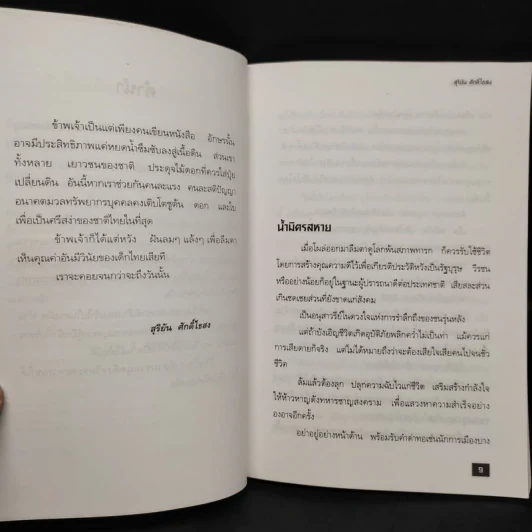 ข้าพเจ้าเป็นแต่เพียงคนเขียนหนังสือ อักษรนั้น
อาจมีประสิทธิภาพแค่หยดน้ำซึมซับลงสู่เนื้อดิน ส่วนเรา
ทั้งหลาย เยาวชนของชาติ ประดุจไม้ดอกที่ควรใส่ปุ๋ย
เปลี่ยนดิน อันนี้หากเราช่วยกันคนละแรง คนละสติปัญญา
อนาคตมวลทรัพยากรบุคคลคงเติบโตชูต้น ดอก และใบ
เพื่อเป็นศรีสง่าของชาติไทยในที่สุด
ข้าพเจ้าก็ได้แต่หวัง ฝันลมๆ แล้งๆ เพื่อลืมตา
เห็นคุณค่าอันมีวินัยของเด็กไทยเสียที
เราจะคอยจนกว่าจะถึงวันนั้น
สุริยัน ศักดิ์ไธสง
สุริยัน ศักดิ์ไธสง
น้ำมิตรสหาย
เมื่อโผล่ออกมาลืมตาดูโลกพ้นสภาพทารก ก็ควรใช้ชีวิต
โดยการสร้างคุณความดีไว้เพื่อเกียรติประวัติหวังเป็นรัฐบุรุษ วีรชน
หรืออย่างน้อยก็อยู่ในฐานะผู้ปรารถนาดีต่อประเทศชาติ เสียสละส่วน
เกินชดเชยส่วนที่ยังขาดแก่สังคม
เป็นอนุสาวรีย์ในดวงใจแห่งการรำลึกถึงของชนรุ่นหลัง
แต่ถ้าบังเอิญชีวิตเกิดอุบัติภัยพลิกคว่ำไม่เป็นท่า แม้ควรแก่
การเสียดายก็จริง แต่ไม่ได้หมายถึงว่าจะต้องเสียใจเสียคนไปจนชั่ว
ชีวิต
ล้มแล้วต้องลุก ปลุกความฉับไวแก่ชีวิต เสริมสร้างกำลังใจ
ให้ห้าวหาญดั่งทหารชาญสงคราม เพื่อแสวงหาความสำเร็จอย่าง
องอาจอีกครั้ง
อย่าอยู่อย่างหน้าด้าน พร้อมรับคำด่าทอเช่นนักการเมืองบาง